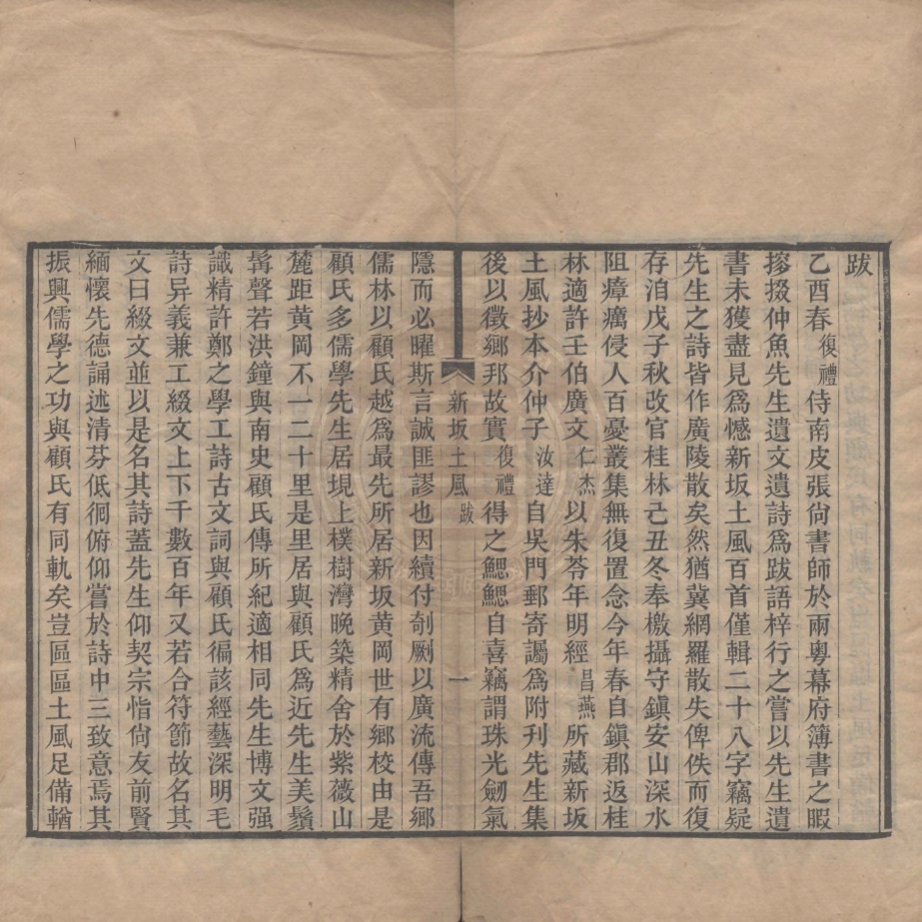 跋
乙酉春復禮侍南皮張尙書師於兩粵幕府簿書之暇
摉掇仲魚先生遺文遺詩爲跋語梓行之嘗以先生遺
書未獲盡見爲憾新坂土風百首僅輯二十八字竊疑
先生之詩皆作廣陵散矣然猶冀網羅散失俾佚而復
存洎戊子秋改官桂林己丑冬奉檄攝守鎭安山深水
阻瘴癘侵人百憂叢集無復置念今年春自鎭郡返桂
林適許壬伯廣文仁杰以朱苓年明經昌燕所藏新坂
土風抄本介仲子汝達自吳門郵寄讕爲附刊先生集
後以徵鄉邦故實復禮得之鰓鰓自喜竊謂珠光劒氣
新坂土風 跋 一
隱而必曜斯言誠匪謬也因續付剞劂以廣流傳吾鄉
儒林以顧氏越爲最先所居新坂黄岡世有鄉校由是
顧氏多儒學先生居垷上樸樹灣晚築精舍於紫薇山
麓距黄岡不一二十里是里居與顧氏爲近先生美鬚
髯聲若洪鐘與南史顧氏傳所紀適相同先生博文强
識精許鄭之學工詩古文詞與顧氏徧該經藝深明毛
詩异義兼工綴文上下千數百年又若合符節故名其
文曰綴文並以是名其詩蓋先生仰契宗恉尙友前賢
緬懷先德誦述清芬低徊俯仰嘗於詩中三致意焉其
振興儒學之功與顧氏有同軌矣豈區區土風足備輶